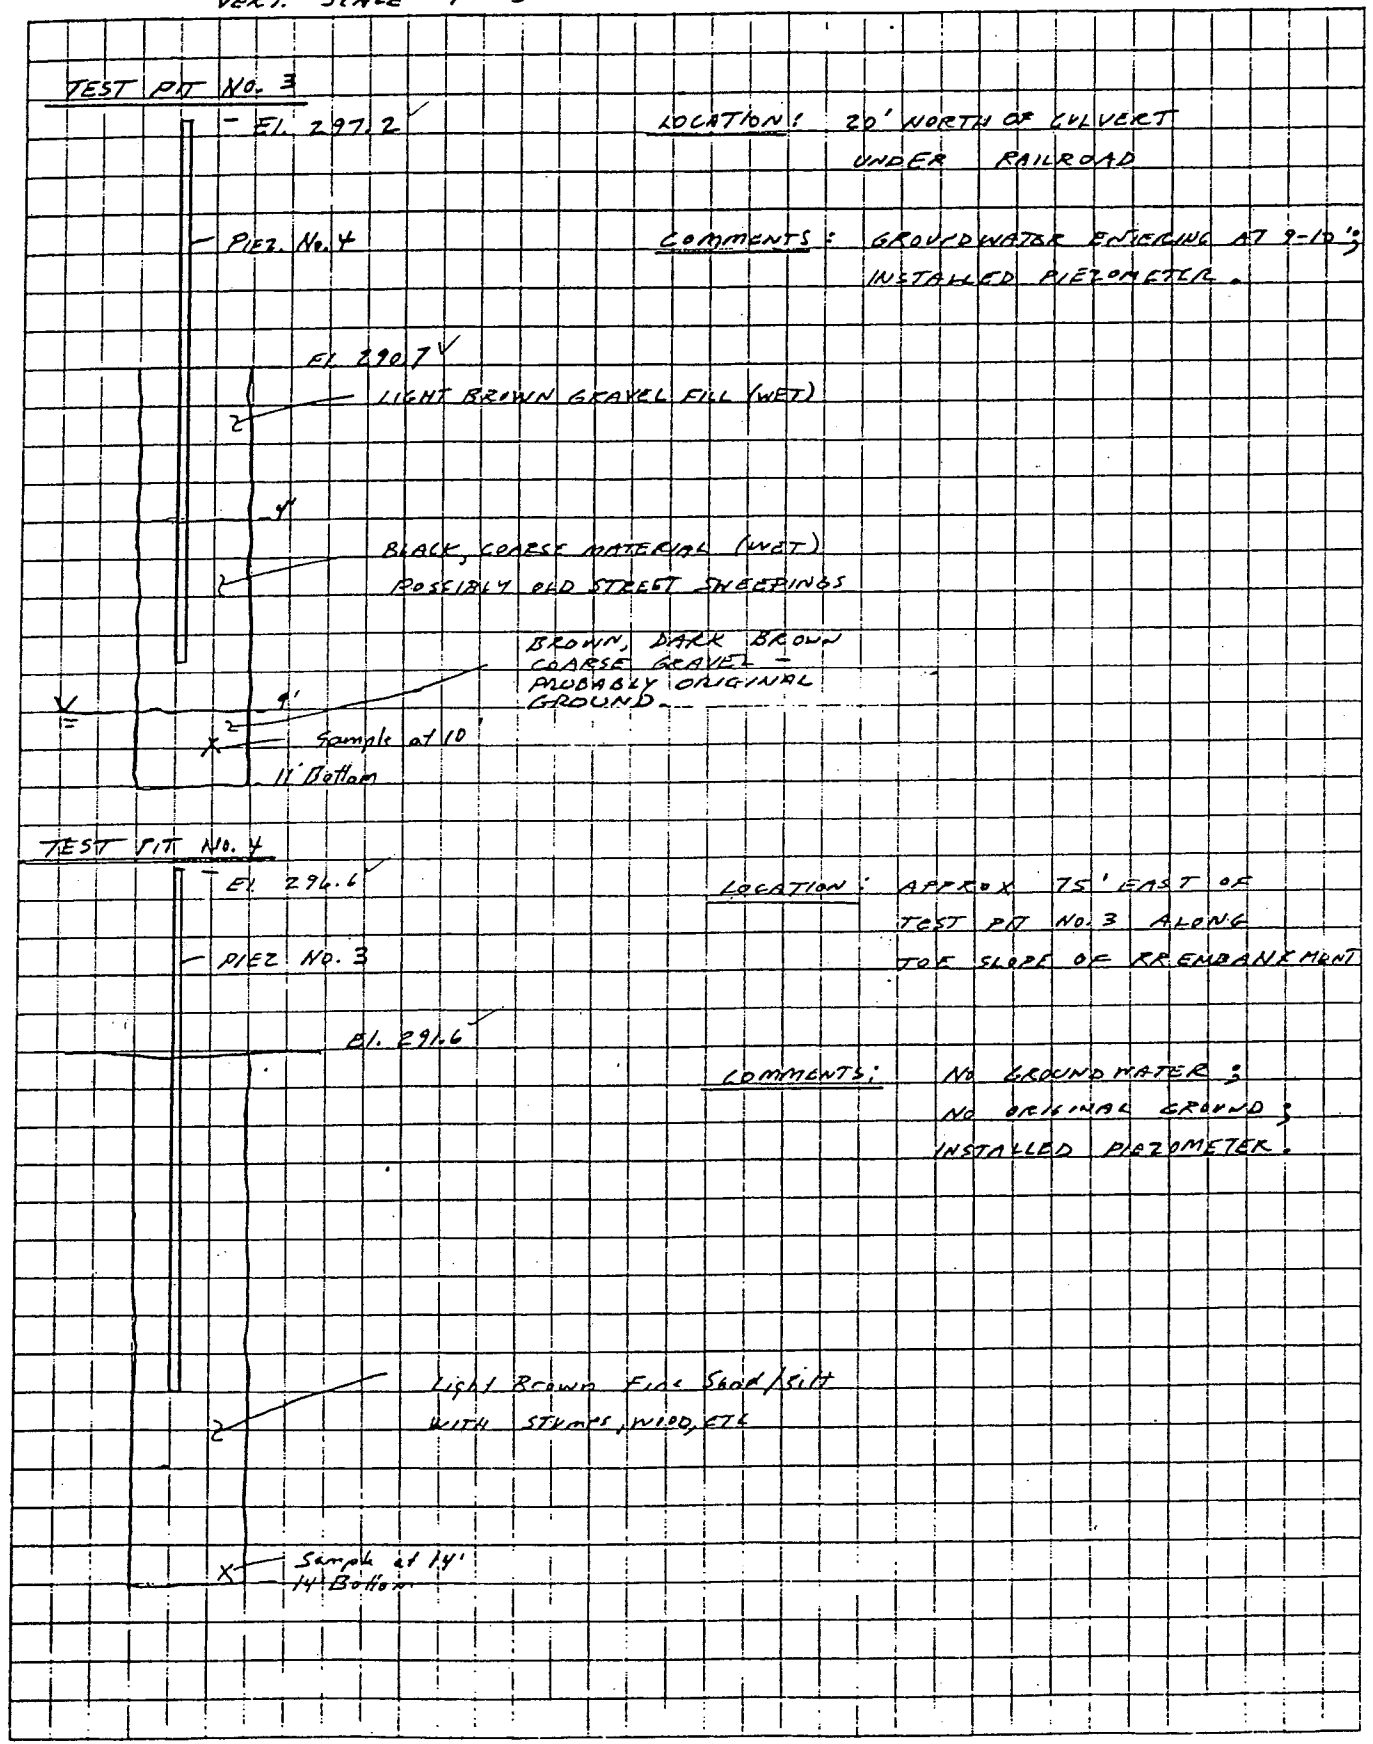 VERT. SCALE
TEST PIT NO. 3
El. 297.2
LOCATION: 20' NORTH OF CULVERT
UNDER RAILROAD
PIEZ. No. 4
COMMENTS: GROUNDWATER ENTERING AT 9-10';
INSTALLED PIEZOMETER.
El. 290.7
LIGHT BROWN GRAVEL FILL (WET)
4'
BLACK, COARSE MATERIAL (WET)
POSSIBLY OLD STREET SWEEPINGS
BROWN, DARK BROWN
COARSE GRAVEL -
PROBABLY ORIGINAL
GROUND.
9'
Sample at 10'
11' Bottom
TEST PIT NO. 4
El. 296.6
LOCATION: APPROX 75' EAST OF
TEST PIT NO. 3 ALONG
TOE SLOPE OF RR EMBANKMENT
PIEZ NO. 3
El. 291.6
COMMENTS: NO GROUNDWATER;
NO ORIGINAL GROUND;
INSTALLED PIEZOMETER.
Light Brown Fine Sand/Silt
WITH STUMPS, WOOD, ETC
Sample at 14'
14' Bottom